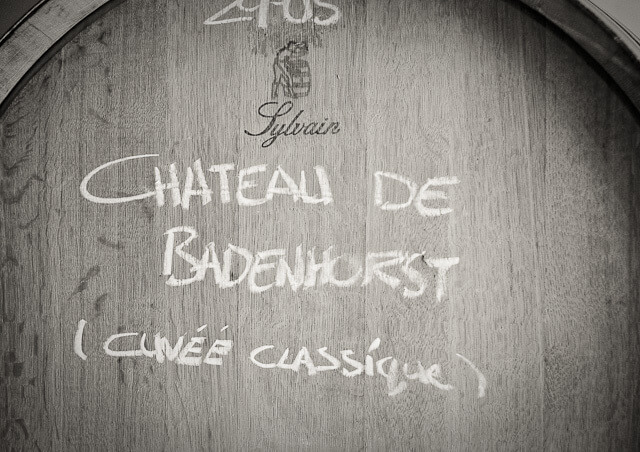 Sylvain
CHATEAU DE
BADENHORST
(CUNÉÉ CLASSíque)